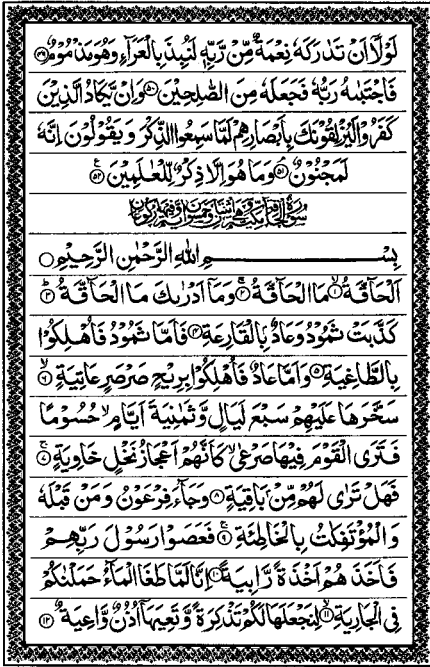 لَوْلَاۤ اَنْ تَدٰرَكَهٗ نِعْمَةٌ مِّنْ رَّبِّهٖ لَنُبِذَ بِالْعَرَآءِ وَهُوَ مَذْمُوْمٌ ۴۹
فَاجْتَبٰىهُ رَبُّهٗ فَجَعَلَهٗ مِنَ الصّٰلِحِيْنَ ۵۰ وَاِنْ يَّكَادُ الَّذِيْنَ
كَفَرُوْا لَيُزْلِقُوْنَكَ بِاَبْصَارِهِمْ لَمَّا سَمِعُوا الذِّكْرَ وَيَقُوْلُوْنَ اِنَّهٗ
لَمَجْنُوْنٌ ۵۱ وَمَا هُوَ اِلَّا ذِكْرٌ لِّلْعٰلَمِيْنَ ۵۲
بِسْمِ اللهِ الرَّحْمٰنِ الرَّحِيْمِ
اَلْحَآقَّةُ ۱ مَا الْحَآقَّةُ ۲ وَمَاۤ اَدْرٰىكَ مَا الْحَآقَّةُ ۳
كَذَّبَتْ ثَمُوْدُ وَعَادٌۢ بِالْقَارِعَةِ ۴ فَاَمَّا ثَمُوْدُ فَاُهْلِكُوْا
بِالطَّاغِيَةِ ۵ وَاَمَّا عَادٌ فَاُهْلِكُوْا بِرِيْحٍ صَرْصَرٍ عَاتِيَةٍ ۶
سَخَّرَهَا عَلَيْهِمْ سَبْعَ لَيَالٍ وَّثَمٰنِيَةَ اَيَّامٍ حُسُوْمًا
فَتَرَى الْقَوْمَ فِيْهَا صَرْعٰى كَاَنَّهُمْ اَعْجَازُ نَخْلٍ خَاوِيَةٍ ۷
فَهَلْ تَرٰى لَهُمْ مِّنْۢ بَاقِيَةٍ ۸ وَجَآءَ فِرْعَوْنُ وَمَنْ قَبْلَهٗ
وَالْمُؤْتَفِكٰتُ بِالْخَاطِئَةِ ۹ فَعَصَوْا رَسُوْلَ رَبِّهِمْ
فَاَخَذَهُمْ اَخْذَةً رَّابِيَةً ۱۰ اِنَّا لَمَّا طَغَا الْمَآءُ حَمَلْنٰكُمْ
فِى الْجَارِيَةِ ۱۱ لِنَجْعَلَهَا لَكُمْ تَذْكِرَةً وَّتَعِيَهَاۤ اُذُنٌ وَّاعِيَةٌ ۱۲